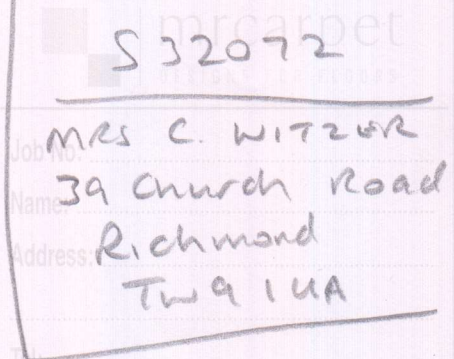 mrcarpet
S32072
Job No:
MRS C. WITZER
Name:
39 Church Road
Address:
Richmond
TW9 1UA